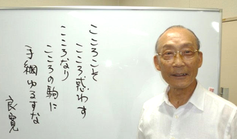 こころこそ
こころ惑わす
こころなり
こころの駒に
手綱ゆるすな
良寛